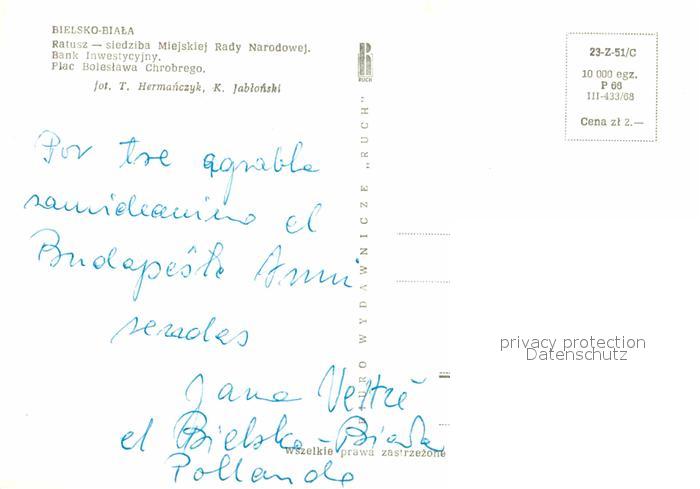 BIELSKO-BIAŁA
Ratusz — siedziba Miejskiej Rady Narodowej.
Bank Inwestycyjny.
Plac Bolesława Chrobrego.
fot. T. Hermańczyk, K. Jabłoński
RUCH
BIURO WYDAWNICZE „RUCH”
23-Z-51/C
10 000 egz.
P 66
III-433/68
Cena zł 2.—
Por tre agrabla
samideanino el
Budapeŝto
sendas
Jana
el Bielsko-Biała
Pollando
wszelkie prawa zastrzeżone
privacy protection
Datenschutz